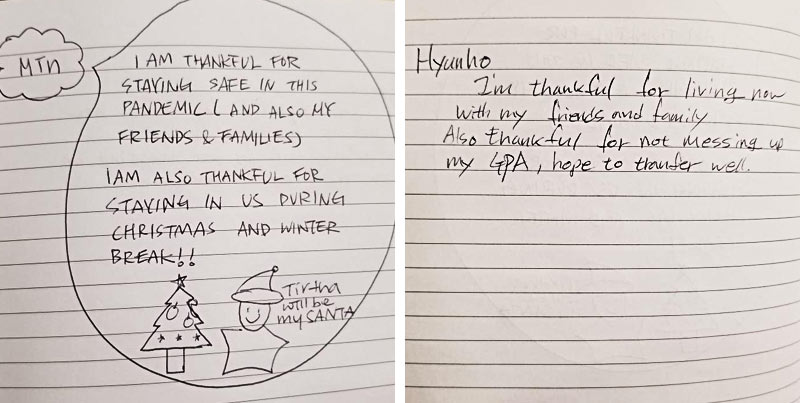 MTN
I AM THANKFUL FOR
STAYING SAFE IN THIS
PANDEMIC (AND ALSO MY
FRIENDS & FAMILIES)
I AM ALSO THANKFUL FOR
STAYING IN US DURING
CHRISTMAS AND WINTER
BREAK!!
Tirtha
will be
my SANTA
Hyunho
I'm thankful for living now
with my friends and family
Also thankful for not messing up
my GPA, hope to tranfer well.